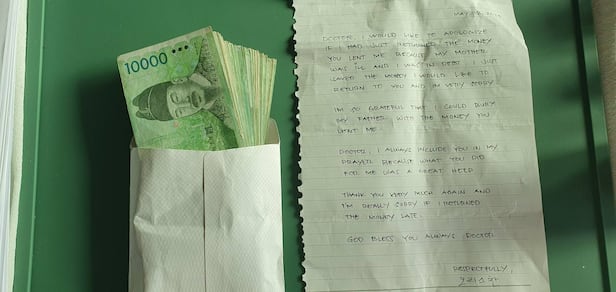 10000
DOCTOR, I WOULD LIKE TO APOLOGIZE
IF I HAD JUST RETURNED THE MONEY
YOU LENT ME BECAUSE MY MOTHER
WAS ILL AND I WAS IN DEBT. I JUST
SAVED THE MONEY I WOULD LIKE TO
RETURN TO YOU AND I'M VERY SORRY
I'M SO GRATEFUL THAT I COULD BURY
MY FATHER WITH THE MONEY YOU
LENT ME.
DOCTOR, I ALWAYS INCLUDE YOU IN MY
PRAYER BECAUSE WHAT YOU DID
FOR ME WAS A GREAT HELP
THANK YOU VERY MUCH AGAIN AND
I'M REALLY SORRY IF I RETURNED
THE MONEY LATE.
GOD BLESS YOU ALWAYS DOCTOR
RESPECTFULLY,